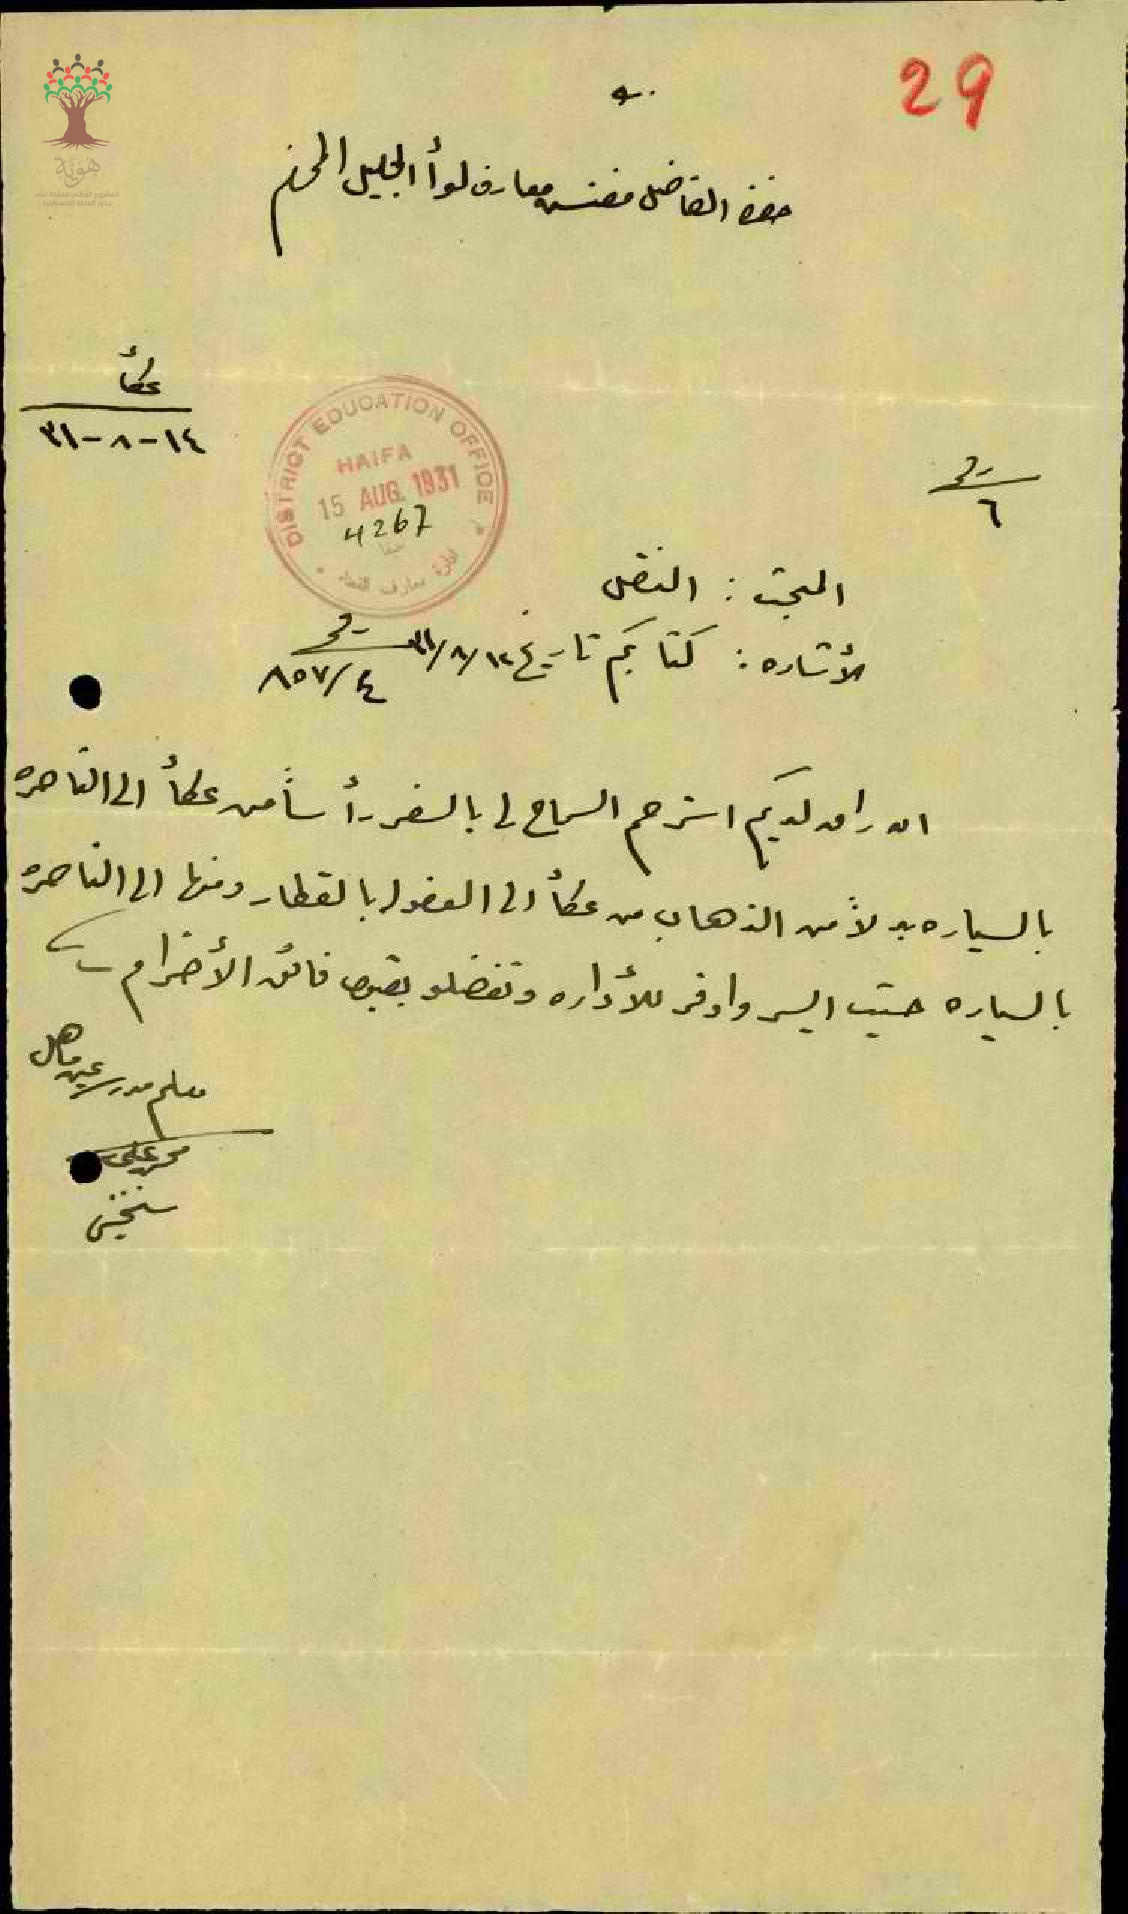 29
حضرة الفاضل مفتش معارف لوأ الجليل المحترم
عكأ
١٤-٨-٣١
DISTRICT EDUCATION OFFICE
HAIFA
15 AUG. 1931
4267
حيفا
ادارة معارف القضاء
رقم
٦
المبحث : النقل
الأشاره : كتابكم تاريخ ١٢/٨/٣١ رقم
٨٥٧/٤
ان راق لديكم استرحم السماح لي بالسفر رأساً من عكأ الى الناصره
بالسياره بدلاً من الذهاب من عكأ الى العفوله بالقطار ومنها الى الناصره
بالسياره حيث ايسر واوفر للأداره وتفضلو بقبول فائق الأحترام
معلم مدرسة عين ماهل
محمد علي
هوية